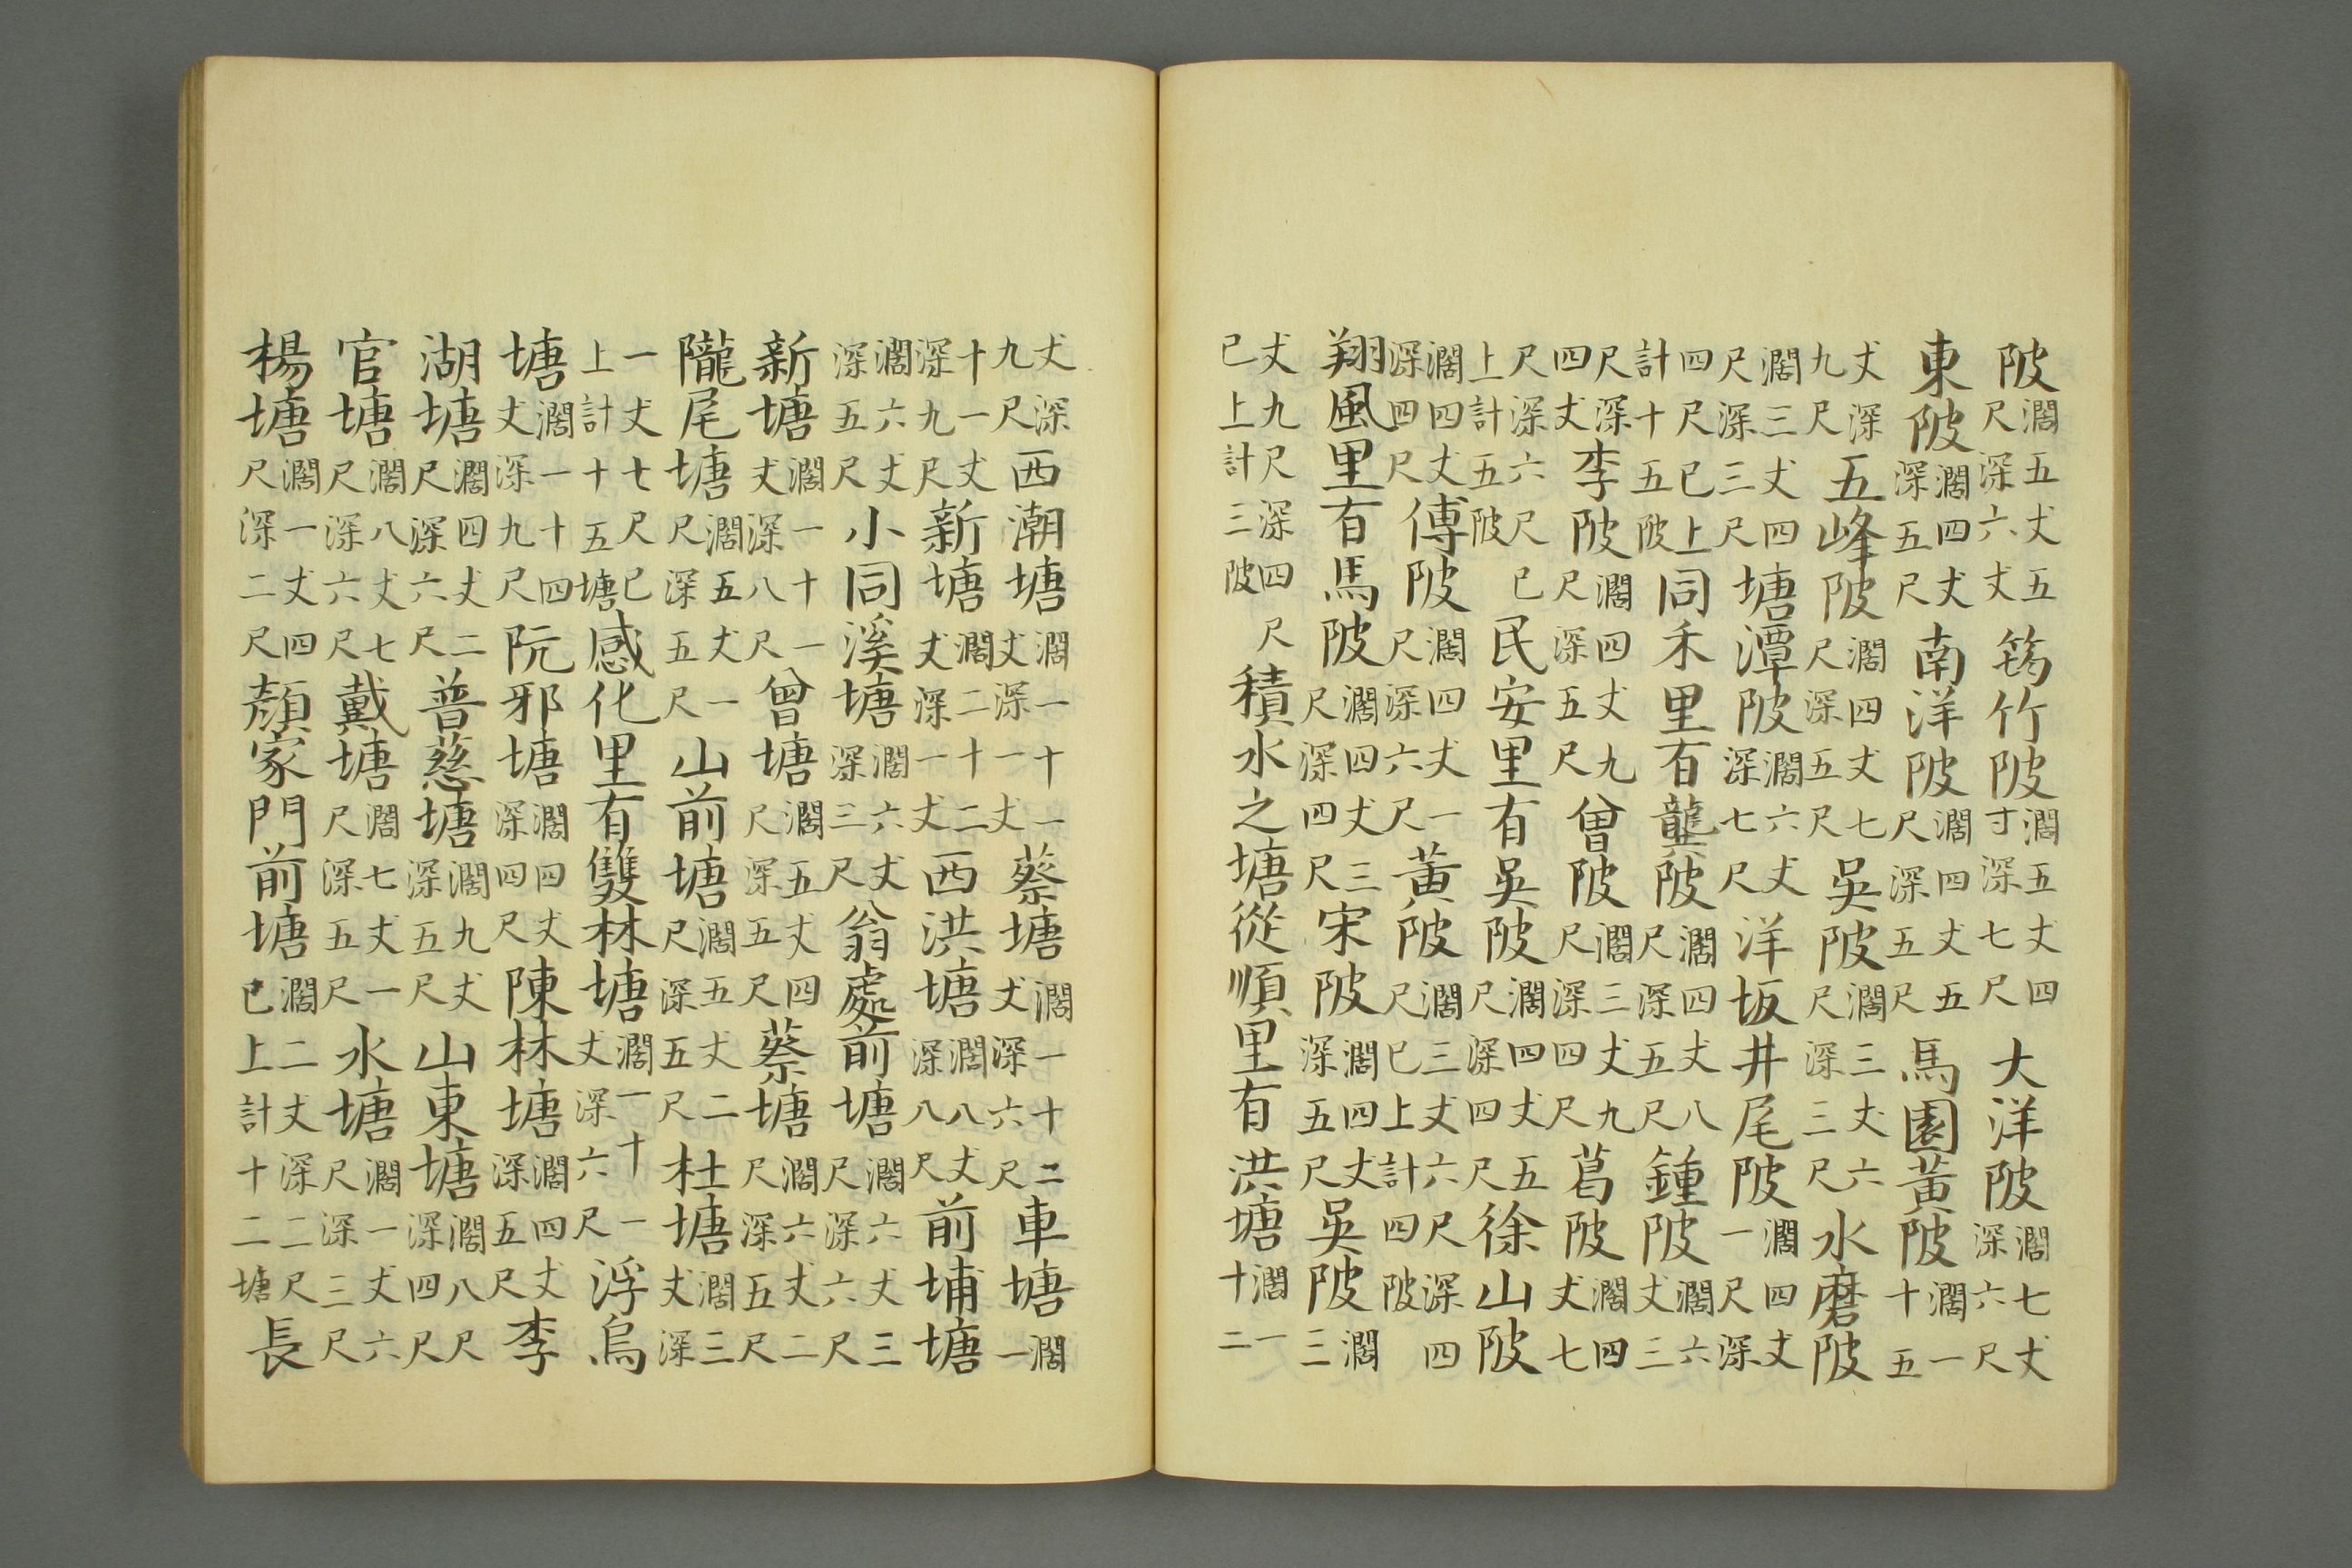 陂濶五丈五尺深六丈筠竹陂濶五丈四寸深七尺大洋陂濶七丈深六尺
東陂濶四丈深五尺南洋陂濶四丈五尺深五尺馬園黃陂濶一十五
丈深九尺五峰陂濶四丈七尺深五尺吳陂濶三丈六尺深三尺水磨陂
濶三丈四尺深三尺塘潭陂濶六丈深七尺洋坂井尾陂濶四丈一尺深
四尺已上計十五陂同禾里有龔陂濶四丈八尺深五尺鍾陂濶六丈三
尺深四丈李陂濶四丈九尺深五尺曾陂濶三丈九尺深四尺葛陂濶四丈七
尺深六尺已上計五陂民安里有吳陂濶四丈五尺深四尺徐山陂
濶四丈深四尺傅陂濶四丈一尺深六尺黃陂濶三丈六尺深四尺已上計四陂
翔風里有馬陂濶四丈三尺深四尺宋陂濶四丈深五尺吳陂濶三
丈九尺深四尺已上計三陂積水之塘從順里有洪塘濶一十二
丈深九尺西潮塘濶一十一丈深一丈蔡塘濶一十二丈深六尺車塘濶一
十一丈深九尺新塘濶二十二丈深一丈西洪塘濶八丈深八尺前埔塘
濶六丈深五尺小同溪塘濶六丈深三尺翁處前塘濶六丈三尺深六尺
新塘濶一十一丈深八尺曾塘濶五丈四尺深五尺蔡塘濶六丈二尺深五尺
隴尾塘濶五丈一尺深五尺山前塘濶五丈二尺深五尺杜塘濶三丈深
一丈七尺已上計十五塘感化里有雙林塘濶一十一丈深六尺浮烏
塘濶一十四丈深九尺阮邪塘濶四丈深四尺陳林塘濶四丈深五尺李
湖塘濶四丈二尺深六尺普慈塘濶九丈深五尺山東塘濶八尺深四尺
官塘濶八丈七尺深六尺戴塘濶七丈一尺深五尺水塘濶一丈六尺深三尺
楊塘濶一丈四尺深二尺顏家門前塘濶二丈深二尺已上計十二塘長